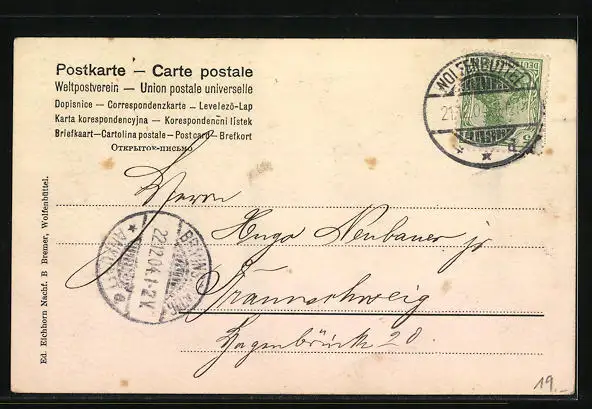 Postkarte — Carte postale
Weltpostverein — Union postale universelle
Dopisnice — Correspondenzkarte — Levelező-Lap
Karta korespondencyjna — Korespondencni listek
Briefkaart—Cartolina postale—Postcard—Brefkort
Открытое-письмо
WOLFENBÜTTEL
21.12.0
DEUT
Herrn
Hugo Neubauer jr
Braunschweig
Hagenbrück 20
22.12.04.1-2V.
Ed. Eichhorn Nachf. B Bremer, Wolfenbüttel.
19.-